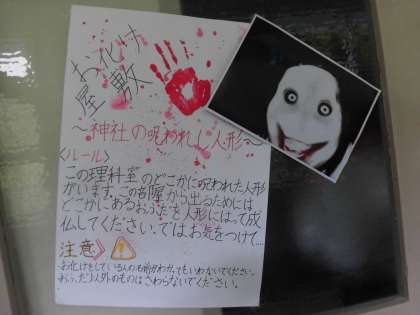 お化け
屋敷
~神社の呪われし人形~
<ルール>
この理科室のどこかに呪われた人形
がいます。この部屋から出るためには
どこかにあるおふだを人形にはって成
仏してください。ではお気をつけて…
注意》⚠
お化けをしている人の名前がわかってもいわないでください。
おふだ以外のものはさわらないでください。